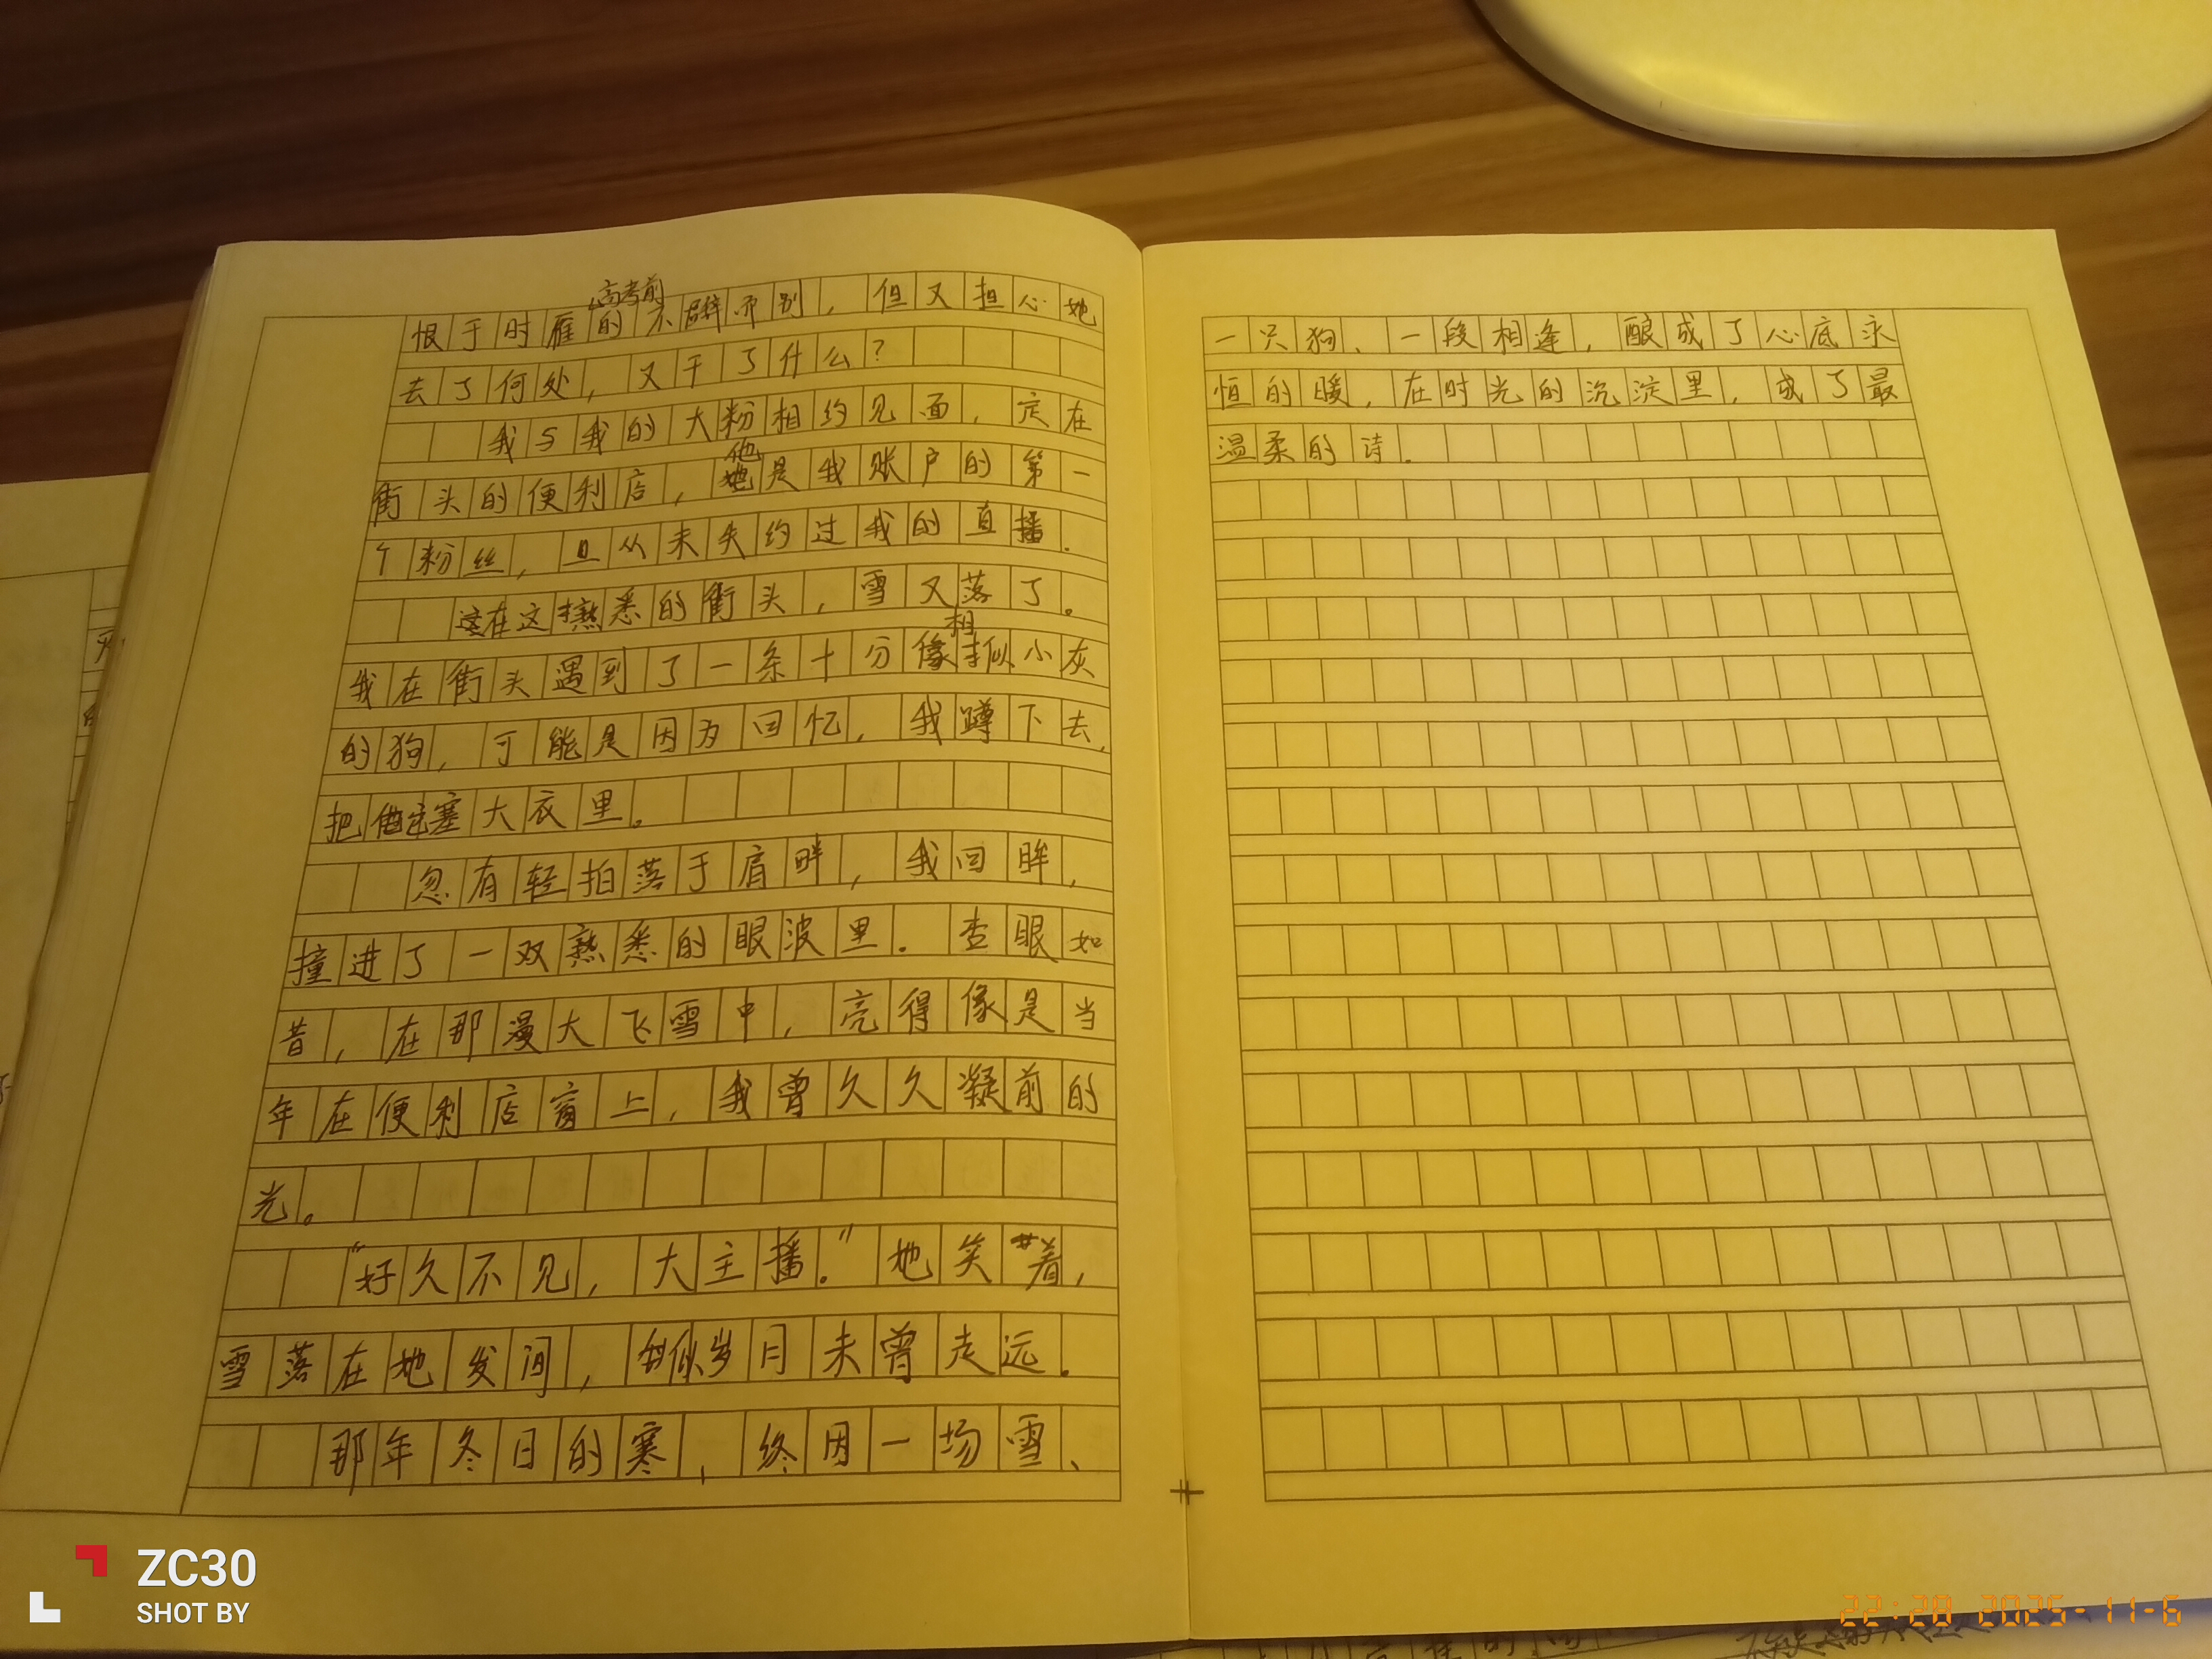 恨于时雁高考前的不辞而别，但又担心她
去了何处，又干了什么？
我与我的大粉相约见面，定在
街头的便利店，他是我账户的第一
个粉丝，且从未失约过我的直播．
在这熟悉的街头，雪又落了。
我在街头遇到了一条十分相似小灰
的狗，可能是因为回忆，我蹲下去，
把它塞大衣里。
忽有轻拍落于肩畔，我回眸，
撞进了一双熟悉的眼波里．杏眼如
昔，在那漫天飞雪中，亮得像是当
年在便利店窗上，我曾久久凝前的
光。
“好久不见，大主播．”她笑着，
雪落在她发间，似岁月未曾走远．
那年冬日的寒，终因一场雪、
一只狗、一段相逢，酿成了心底永
恒的暖，在时光的沉淀里，成了最
温柔的诗．
ZC30
SHOT BY
22:28 2025-11-6